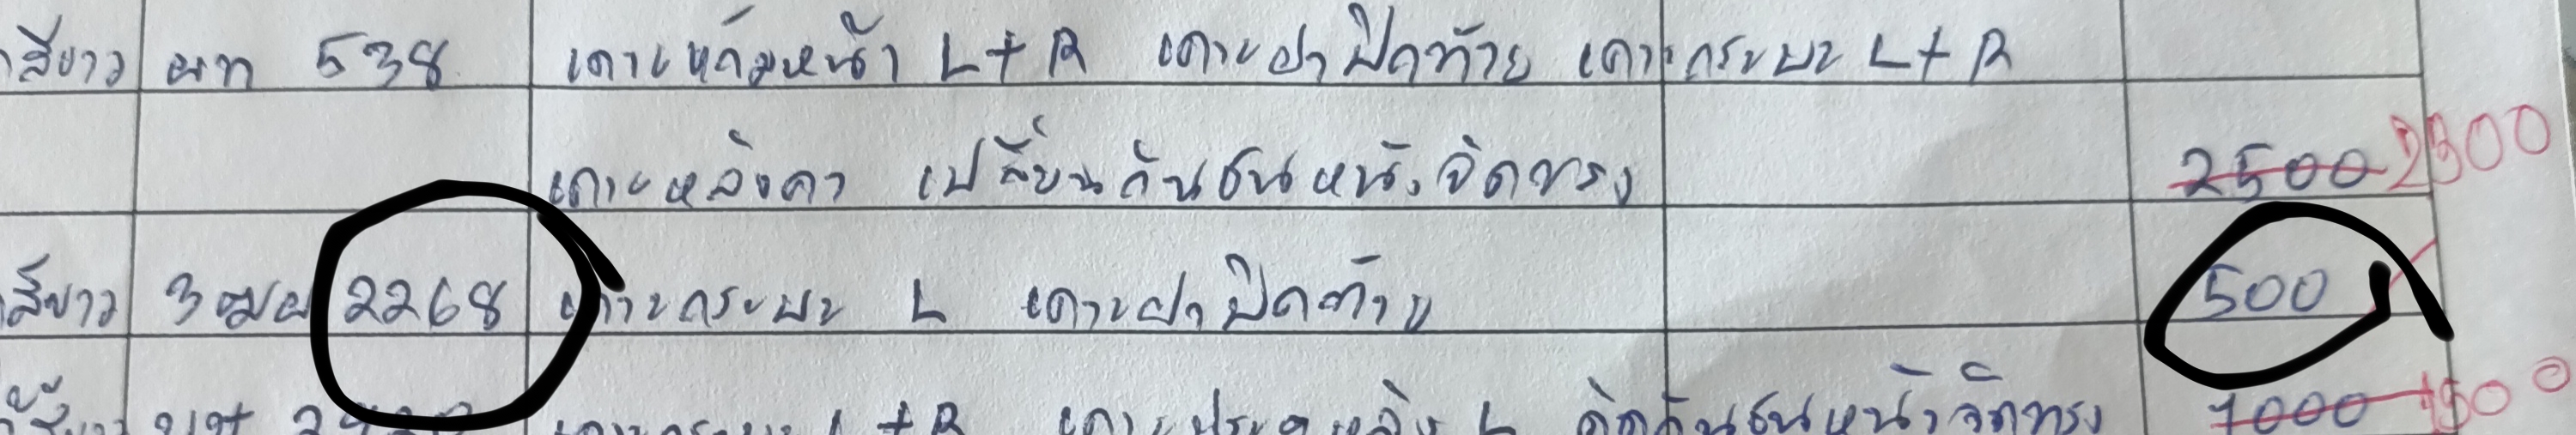 สีขาว ผท 538 เคาะแก้มหน้า L+R เคาะฝาปิดท้าย เคาะกระบะ L+R
เคาะหลังคา เปลี่ยนกันชนหน้า จัดทรง 2500 2300
สีขาว 3ฒผ 2268 เคาะกระบะ L เคาะฝาปิดท้าย 500
เคาะกระบะ L+R เคาะประตูหลัง L ติดกันชนหน้า จัดทรง 1000 1500